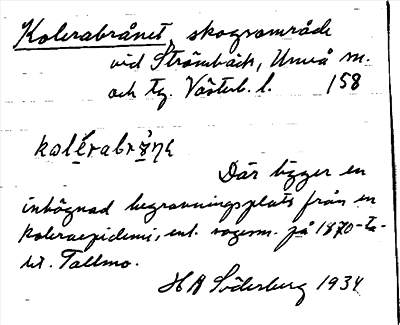 Kolerabrånet, skogsområde
vid Strömbäck, Umeå sn.
och tg. Västerb. l. 158
Där ligger en
inhägnad begravningsplats från en
koleraepidemi, enl. sagesm. på 1870-ta-
let. Tallmo.
H A Söderberg 1934